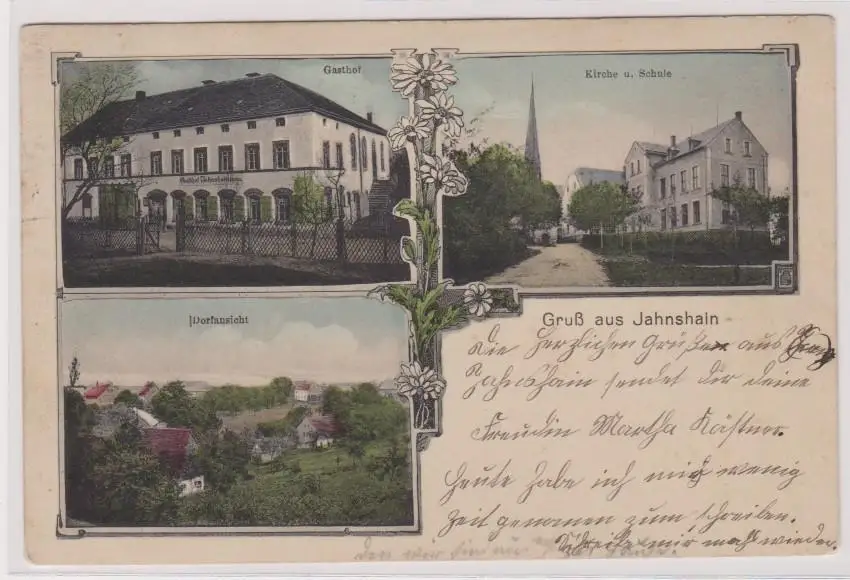 Gasthof
Kirche u. Schule
Dorfansicht
Gruß aus Jahnshain
Die herzlichen Grüße aus
Jahnshain sendet dir deine
Freudin Martha Kästner.
Heute habe ich nur wenig
Zeit genomen zum schreiben.
Schreibe mir mahl wieder.